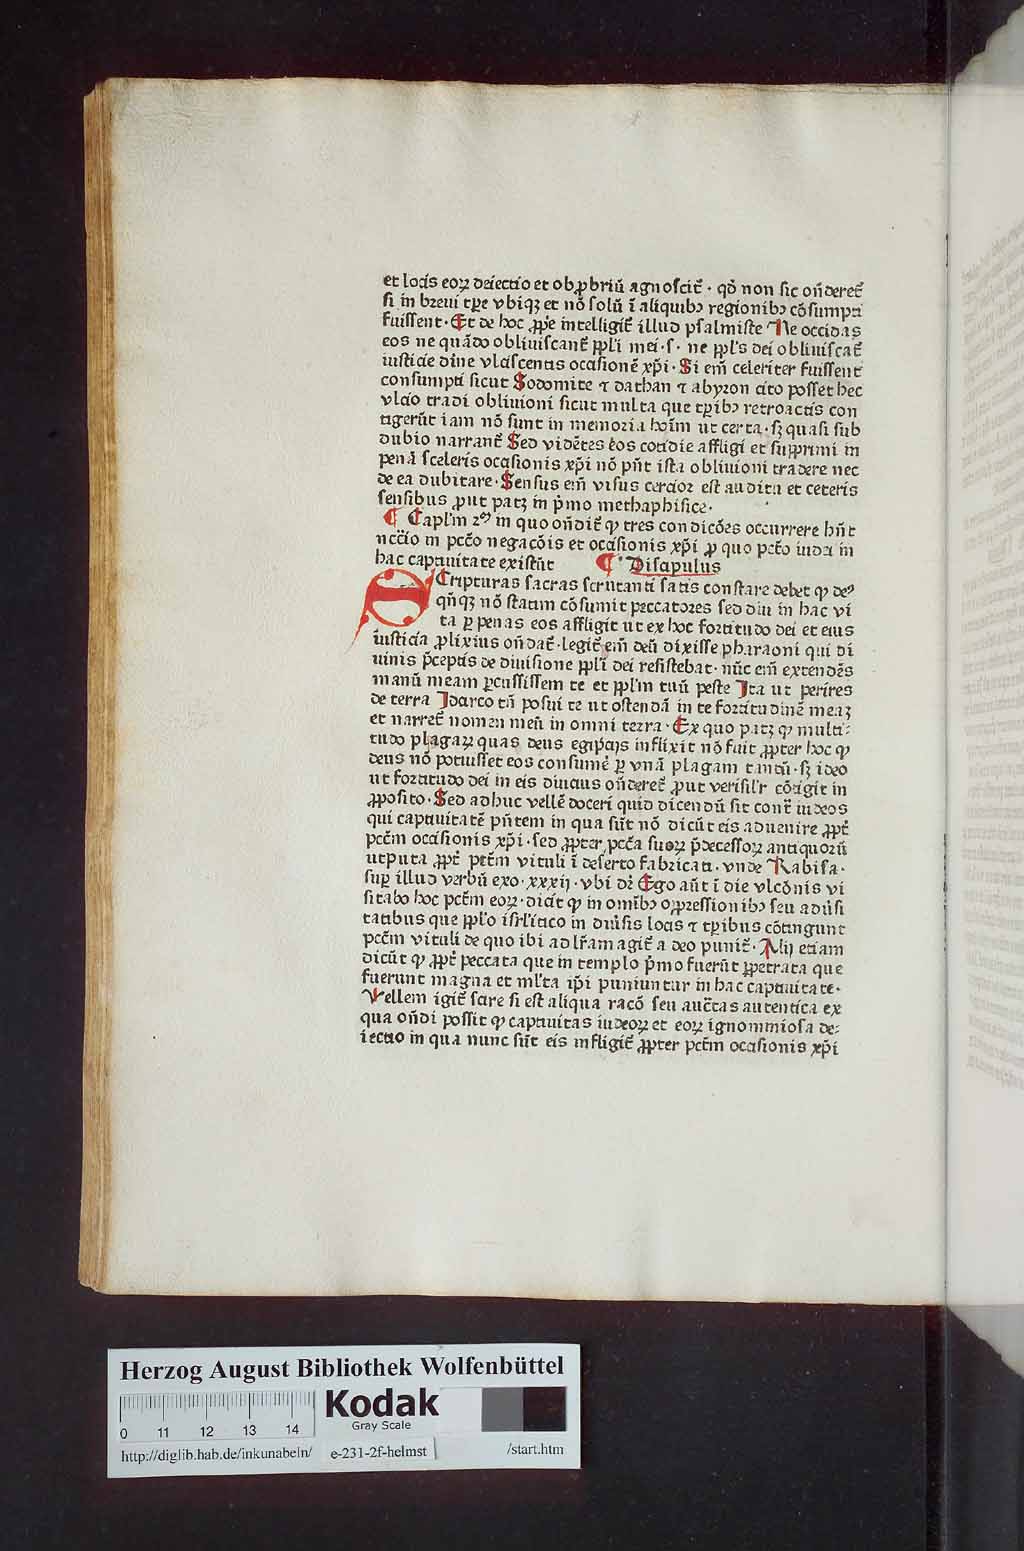 et locis eoꝝ deiectio et obꝓbriū agnoscit᷑ · qd̉ non sic on̄deret᷑
si in breui tꝑe vbiqꝫ et nō solū ī aliquibꝰ regionibꝰ cōsumpti
fuissent · Et de hoc ꝓp̉e intelligit᷑ illud psalmiste Ne occidas
eos ne quādo obliuiscant᷑ pp̄li mei · s · ne pp̄ls dei obliuiscat᷑
iusticie diīne vlciscentis ocasionē xp̄i · Si em̄ celeriter fuissent
consumpti sicut Sodomite ⁊ dathan ⁊ abyron cito posset hec
vlcio tradi obliuioni sicut multa que tꝑibꝰ retroactis con
tigerūt iam nō sunt in memoria hoīm ut certa · sꝫ quasi sub
dubio narrant᷑ Sed vidētes eos cotidie affligi et supprimi in
penā sceleris ocasionis xp̄i nō pn̄t ista obliuioni tradere nec
de ea dubitare · Sensus em̄ visus cercior est audita et ceteris
sensibus ꝓut patꝫ in p̄mo methaphisice ·
¶ Capl̄m 2ᵐ in quo on̄dit᷑ ꝙ tres condicōes occurrere hn̄t
nc̄cio in pctō negacōis et ocasionis xp̄i ꝓ quo pctō iudei in
hac captiuitate existūt ¶ Discipulus
SCripturas sacras scrutanti satis constare debet ꝙ deꝰ
qn̄qꝫ nō statim cōsumit peccatores sed diu in hac vi
ta ꝑ penas eos affligit ut ex hoc fortitudo dei et eius
iusticia ꝓlixius on̄dat᷑ · legit᷑ em̄ deū dixisse pharaoni qui di
uinis p̄ceptis de diuisione pp̄li dei resistebat · nūc em̄ extendēs
manū meam ꝑcussissem te et pp̄lm tuū peste Ita ut perires
de terra Idarco tn̄ posui te ut ostendā in te fortitudinē meaꝫ
et narret᷑ nomen meū in omni terra · Ex quo patꝫ ꝙ multi-
tudo plagaꝝ quas deus egip̄cijs inflixit nō fuit ꝓpter hoc ꝙ
deus nō potuisset eos consume᷑ ꝑ vnā plagam tantū · sꝫ ideo
ut fortitudo dei in eis diucius on̄deret᷑ ꝓut verisil'r cōtigit in
ꝓposito · Sed adhuc vellē doceri quid dicendū sit cont᷑ iudeos
qui captiuitatē pn̄tem in qua sūt nō dicūt eis aduenire ꝓpt᷑
pctm̄ ocasionis xp̄i · sed ꝓpter pctā suoꝝ p̄decessoꝝ antiquorū
utputa ꝓpt᷑ pctm̄ vituli ī deserto fabricati · vnde Rabisa ·
suꝑ illud verbū exo · xxxij · vbi dr̄ Ego aūt ī die vlcōnis vi
sitabo hoc pctm̄ eoꝝ · dicit ꝙ in omībꝰ oppressionibꝰ seu adūsi
tatibus que pp̄lo isrl̄itico in diūsis locis ⁊ tꝑibus cōtingunt
pctm̄ vituli de quo ibi ad lr̄am agit᷑ a deo punit᷑ · Alij etiam
dicūt ꝙ ꝓpt᷑ peccata que in templo p̄mo fuerūt ꝑpetrata que
fuerunt magna et ml̄ta ip̄i puniuntur in hac captiuitate ·
Vellem igit᷑ scire si est aliqua racō seu auctitas autentica ex
qua on̄di possit ꝙ captiuitas iudeoꝝ et eoꝝ ignominiosa de-
iectio in qua nunc sūt eis infligit᷑ ꝓpter pctm̄ ocasionis xp̄i
Herzog August Bibliothek Wolfenbüttel
Kodak
Gray Scale
0 11 12 13 14
http://diglib.hab.de/inkunabeln/ e-231-2f-helmst /start.htm